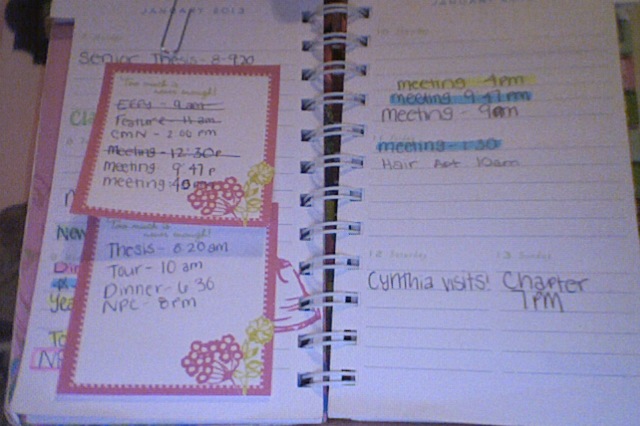 JANUARY 2013
Senior Thesis - 8-920
Too much is
never enough!
Essy - 9am
Feature - 11am
CMN - 2:00 pm
Meeting - 12:30p
meeting 9:47p
meeting
Too much is
never enough!
Thesis - 8:20am
Tour - 10 am
Dinner - 6:30
NPC - 8pm
New
JANUARY 2013
meeting - 4pm
meeting 9:47pm
meeting - 9pm
meeting - 1:30
Hair 10am
12 Saturday
13 Sunday
Cynthia visits!
Chapter
7PM